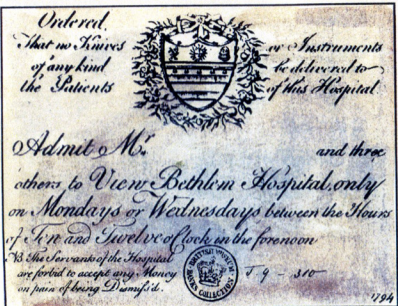 Ordered
That no Knives or Instruments
of any kind be delivered to
the Patients of this Hospital
Admit Mr. and three
others to View Bethlem Hospital, only
on Mondays or Wednesdays between the Hours
of Ten and Twelve o'Clock in the forenoon
NB. The Servants of the Hospital
are forbid to accept any Money
on pain of being Dismiss'd.
BRITISH MUSEUM
BANKS COLLECTION
J. 9 - 310
1794